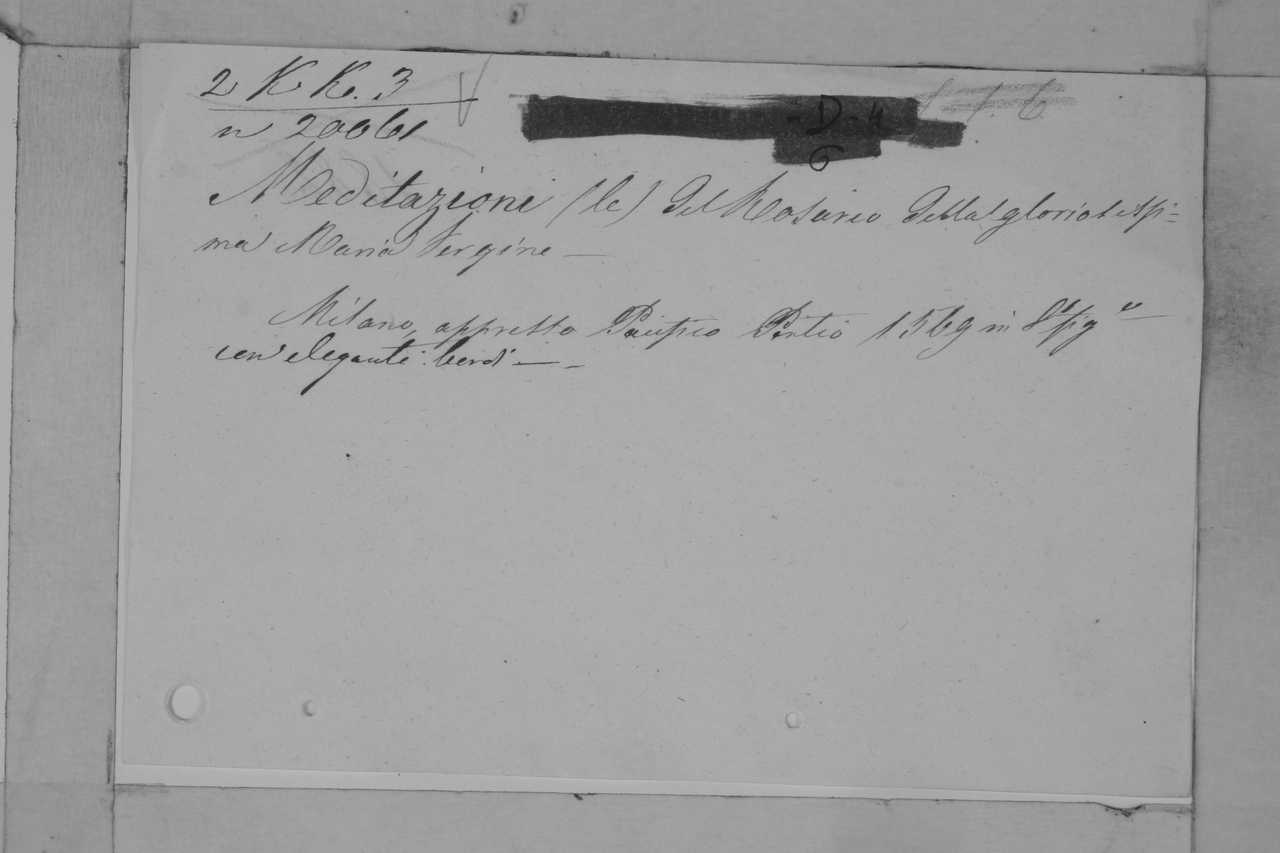 2 K K. 3
n 20061
- D - 4
6
Meditazioni (le) del Rosario della gloriosissi=
ma Maria Vergine —
Milano, appresso Pacifico Pontio 1569 in 8º fig º —
con eleganti bordi — -